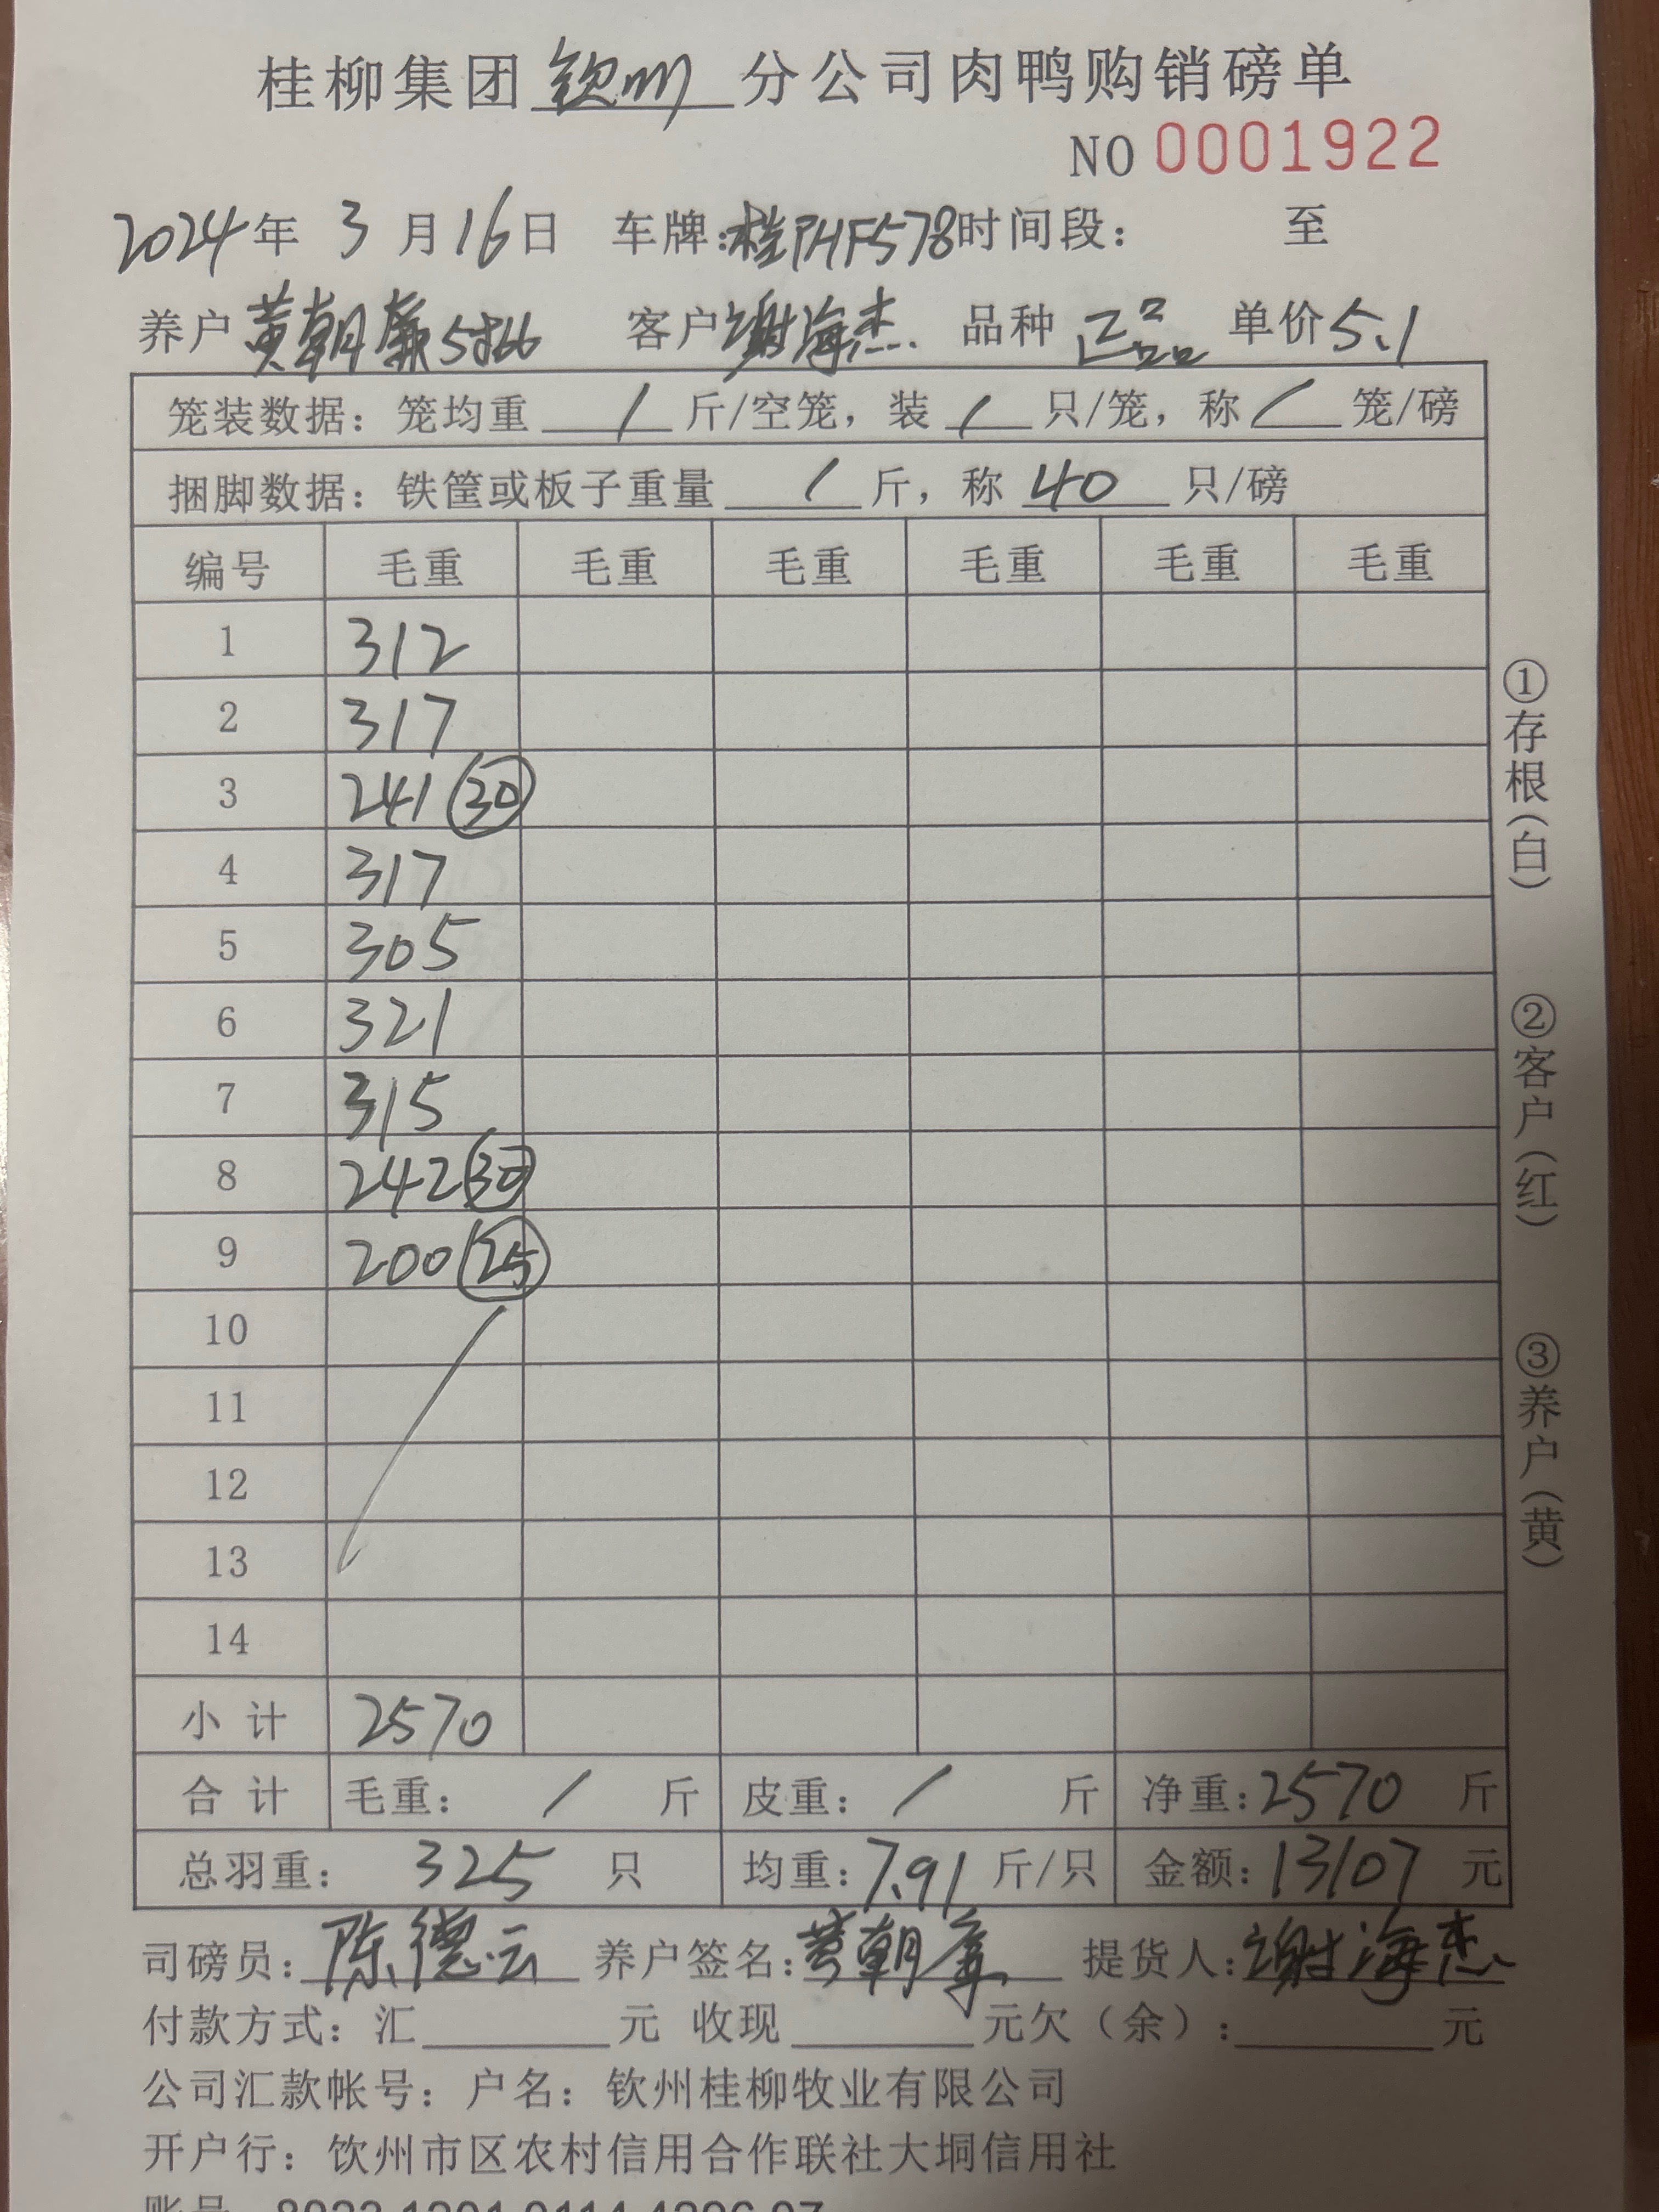 桂柳集团钦州分公司肉鸭购销磅单
NO 0001922
2024年 3月16日 车牌:桂PHF578时间段: 至
养户黄朝 客户谢海杰 品种 正品 单价5.1
笼装数据: 笼均重 / 斤/空笼, 装 / 只/笼, 称 / 笼/磅
捆脚数据: 铁筐或板子重量 / 斤, 称 40 只/磅
编号 毛重 毛重 毛重 毛重 毛重 毛重
1 312
2 317
3 241 30
4 317
5 305
6 321
7 315
8 242 30
9 200 25
10
11
12
13
14
小计 2570
合计 毛重: / 斤 皮重: / 斤 净重:2570 斤
总羽重: 325 只 均重:7.91 斤/只 金额:13107 元
司磅员:陈德云 养户签名:黄朝 提货人:谢海杰
付款方式: 汇 元 收现 元欠(余): 元
公司汇款帐号: 户名: 钦州桂柳牧业有限公司
开户行: 饮州市区农村信用合作联社大垌信用社
①存根(白)
②客户(红)
③养户(黄)